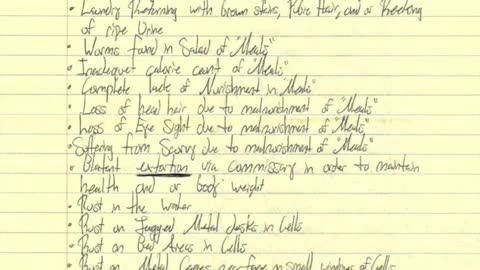 • Laundry Returning with brown stains, Pubic Hair, and or Reeking
of ripe Urine
• Worms found in Salad of "Meals"
• Inadequet calorie count of "Meals"
• Complete lack of Nurishment in "Meals"
• Loss of head hair due to malnurishment of "Meals"
• Loss of Eye Sight due to malnurishment of "Meals"
• Suffering from Scurvy due to malnurishment of "Meals"
• Blatent extortion via commissary in order to maintain
health and or body weight
• Rust in the water
• Rust on Jagged Metal desks in Cells
• Rust on Bed Areas in Cells
• Rust on Metal on small windows of Cells